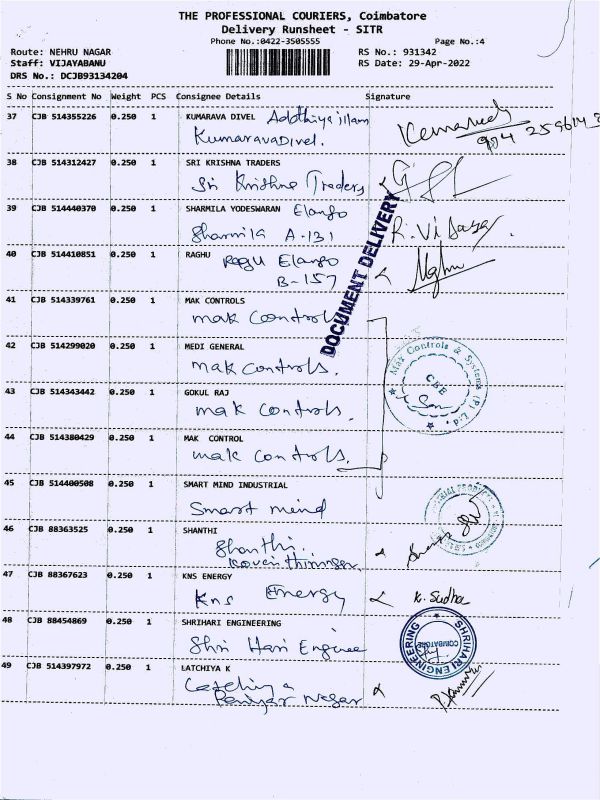 THE PROFESSIONAL COURIERS, Coimbatore
Delivery Runsheet - SITR
Phone No.:0422-3505555
Page No.:4
Route: NEHRU NAGAR
RS No.: 931342
Staff: VIJAYABANU
RS Date: 29-Apr-2022
DRS No.: DCJB93134204
S No Consignment No Weight PCS Consignee Details Signature
37 CJB 514355226 0.250 1 KUMARAVA DIVEL Addthiya illam
KumaravaDivel.
38 CJB 514312427 0.250 1 SRI KRISHNA TRADERS
Sri Krithna Traders
39 CJB 514440370 0.250 1 SHARMILA YODESWARAN Elango
Sharmila A-131 R. Vijaya.
40 CJB 514410851 0.250 1 RAGHU Ragu Elango
B-157
DOCUMENT DELIVERY
41 CJB 514339761 0.250 1 MAK CONTROLS
mak Controls
42 CJB 514299020 0.250 1 MEDI GENERAL
mak Controls.
Mak Controls & Systems (P) Ltd.
CBE
43 CJB 514343442 0.250 1 GOKUL RAJ
mak Controls.
44 CJB 514380429 0.250 1 MAK CONTROL
mak Controls.
45 CJB 514400508 0.250 1 SMART MIND INDUSTRIAL
Smart mind
46 CJB 88363525 0.250 1 SHANTHI
Shanthi.
47 CJB 88367623 0.250 1 KNS ENERGY
Kns Energy K. Sudha
48 CJB 88454869 0.250 1 SHRIHARI ENGINEERING
Shri Hari Enginee
SHRIHARI ENGINEERING
COIMBATORE
49 CJB 514397972 0.250 1 LATCHIYA K
Latchiya
Periyar Nagar